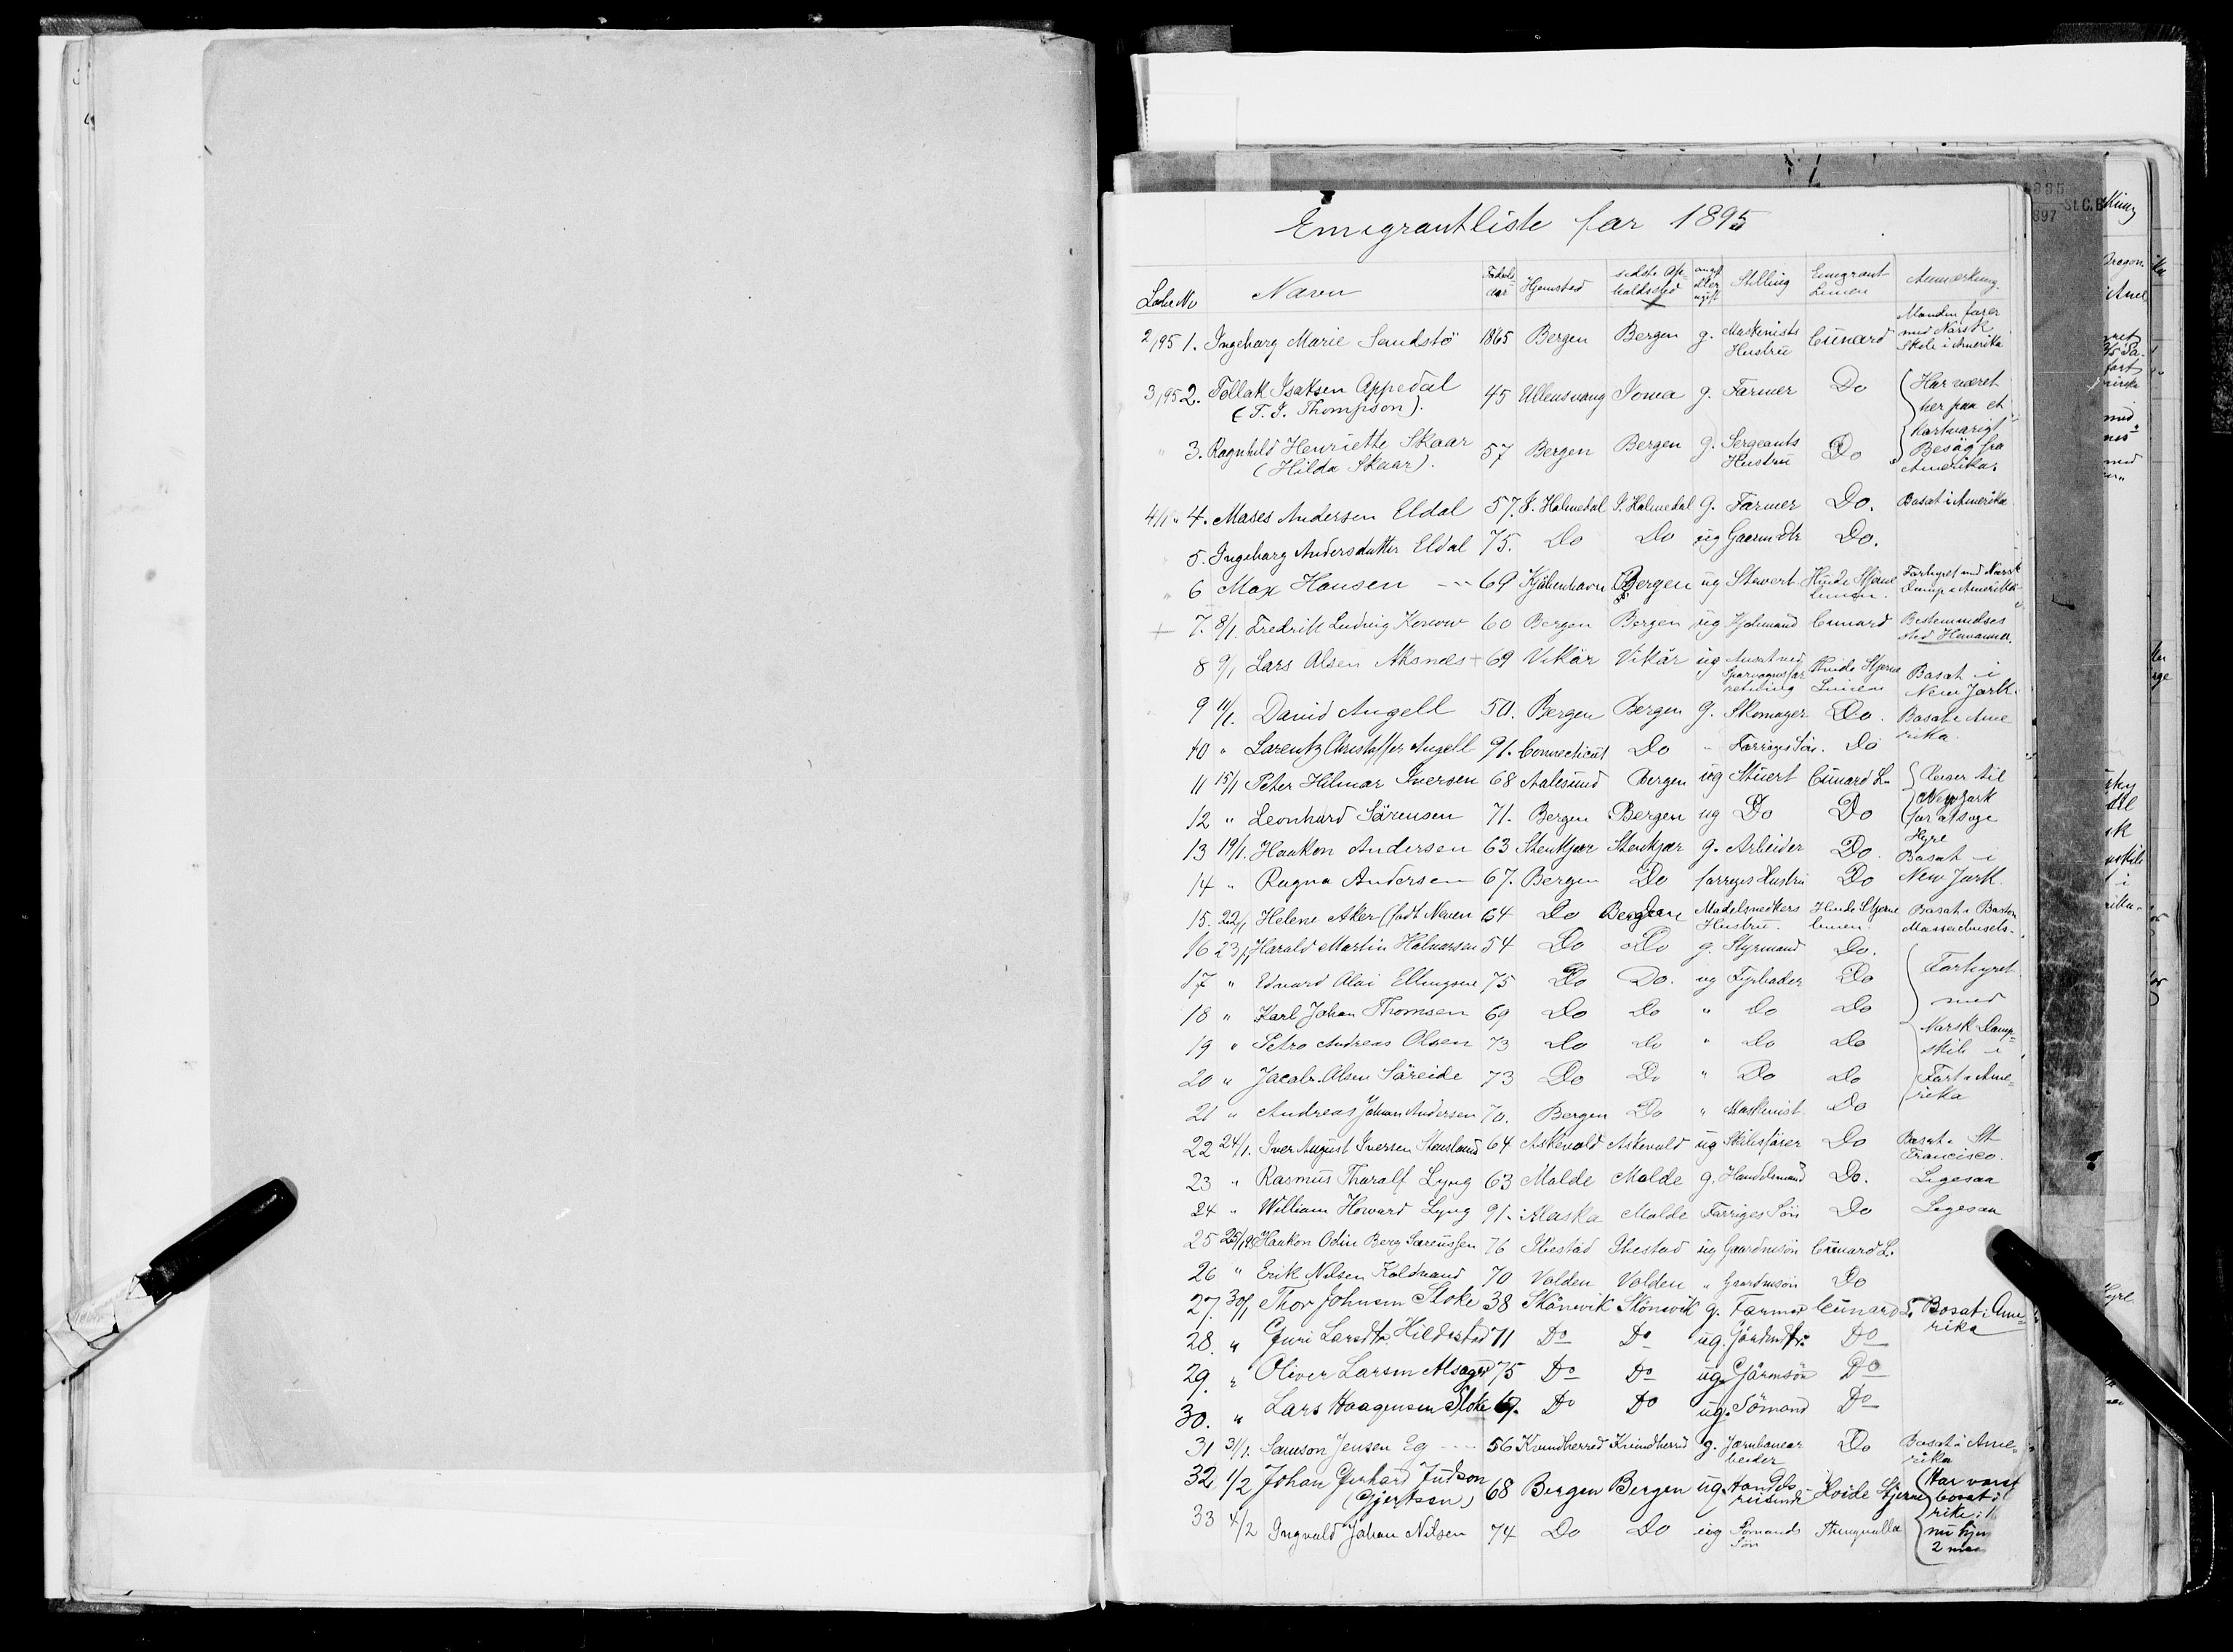 Emigrantliste for 1895
Løbe No Navn Fødsels aar Hjemsted sidste Op- holdssted ugift eller gift Stilling Emigrant Linien Anmærkning.
2/1 95 1. Ingeborg Marie Sandstö 1865 Bergen Bergen g. Maskinists Hustru Cunard Manden farer med Norsk Skib i Amerika
3/1 95 2. Tollak Isaksen Appedal (T. I. Thompson). 45 Ullensvang Iowa g. Farmer Do Har været her paa et
" 3. Ragnhild Henriette Skaar (Hilda Skaar). 57 Bergen Bergen g. Sergeants Hustru Do kortvarigt Besøg fra Amerika.
4/1 " 4. Moses Andersen Eldal 57. I. Holmedal I. Holmedal g. Farmer Do. Bosat i Amerika.
5. Ingeborg Andersdatter Eldal 75. Do Do ug Gaarm dtr Do.
" 6 Max Hansen 69 Kjöbenhavn Bergen ug Stewert Hvide Stjerne Linien. Forhyret med Norsk Damp i Amerika
+ 7. 8/1. Fredrik Ludvig Konow 60 Bergen Bergen ug Kjobmand Cunard Bestemmelses sted
8 9/1 Lars Olsen Aksnes + 69 Vikör Vikör ug Ansat ved Sporvognsfor retning Hvide Stjerne Linien Bosat i New York.
9 11/1. David Angell 50. Bergen Bergen g. Skomager Do. Bosat i Ame rika.
10 " Lorentz Christoffer Angell 91. Connecticut Do - Forriges Sön. Do
11 15/1 Peter Hilmar Iversen 68 Aalesund Bergen ug Stuert Cunard L. Reiser til
12 " Leonhard Sörensen 71. Bergen Bergen ug Do Do New York for at søge Hyre
13 19/1. Haakon Andersen 63 Stenkjær Stenkjær g. Arbeider Do. Bosat i
14 " Ragna Andersen 67. Bergen Do forriges Hustru Do New York.
15. 22/1 Helene Aker (født Neuen 64 Do Bergen Modelsnedkers Hustru. Hvide Stjerne Linien. Bosat i Boston Massachusets.
16 23/1 Harald Martin Halvorsen 54 Do Do g. Styrmand Do. Forhyret
17 " Edvard Olai Ellingsen 75 Do Do. ug Fyrböder Do med
18 " Karl Johan Thomsen 69 Do Do " Do Do
19 " Petro Andreas Olsen 73 Do Do " Do Do Norsk Damp= skib i
20 " Jacob Olsen Söreide 73 Do Do " Do Do Fart i Ame=
21 " Andreas Johan Andersen 70. Bergen Do " Maskinist. Do rika
22 24/1. Iver August Iversen Stensland 64 Askevold Askevold ug Skibsförer Do Bosat i St Francisco.
23 " Rasmus Tharalf Lyng 63 Molde Molde g. Handelsmand Do. Ligesaa
24 " William Howard Lyng 91. Alaska Molde Forriges Sön Do Ligesaa
25 25/1 95 Haakon Odin Berg Sørenssen 76 Ibestad Ibestad ug Gaardmsön Cunard L.
26 " Erik Nilsen Koldvand 70 Volden Volden " Gaardmsön Do
27. 30/1 Thor Johnsen Stoke 38 Skånevik Skönevik g. Farmer Cunard L. Bosat i Ame= rika
28. " Guri Larsdtr. Hildestad 71 Do Do ug. Gårdmdtr. Do
29. " Oliver Larsen Alsager 75 Do Do ug. Gårmsön Do
30. " Lars Haagensen Stoke 69. Do Do ug. Sömand Do
31 31/1. Samson Jensen Eg 56 Kvindherred Kvindherred g. Jernbanear beider Do Bosat i Ame= rika
32, 1/2 Johan Gerhard Judson (Gjertsen) 68 Bergen Bergen ug. Handels reisende Hvide Stjerne Har været bosat i
33 4/2 Ingvald Johan Nilsen 74 Do Do ug Sömands Sön Thingvalla nu hjem 2